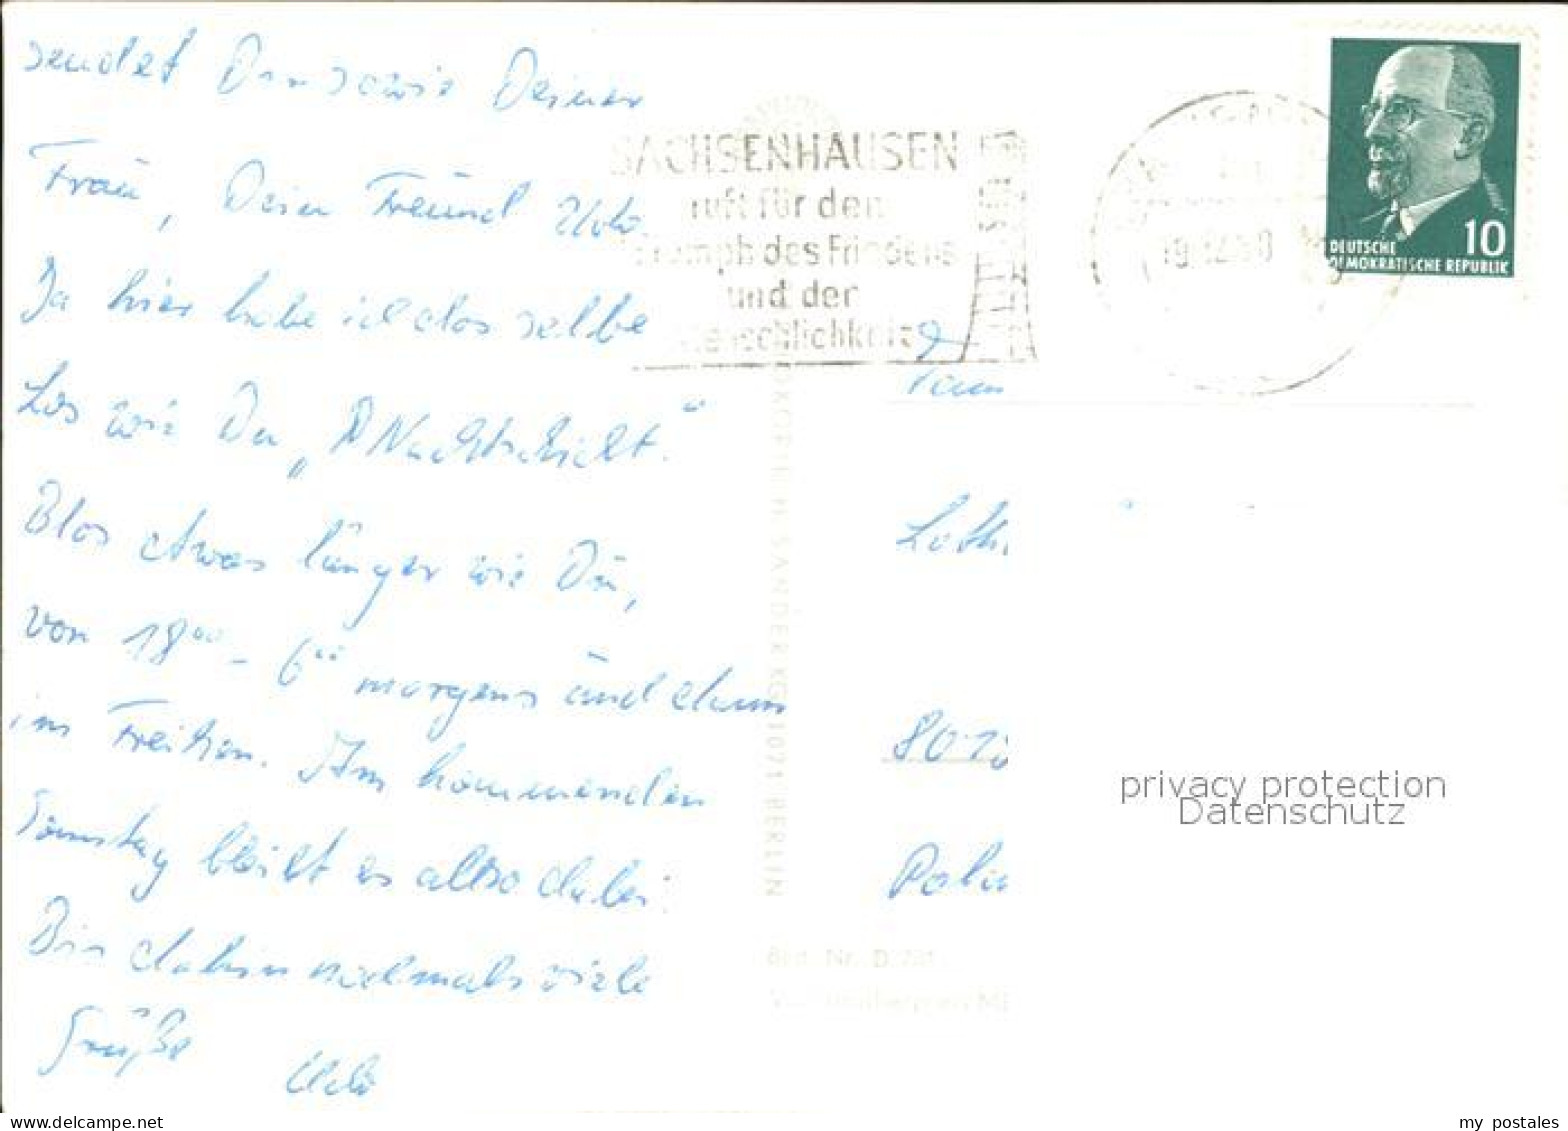 sendet Dir sowie Deiner
Frau, Dein Freund Udo.
Ja hier habe ich das selbe
Los wie Du „Nachtschicht.“
Blos etwas länger wie Du,
von 18⁰⁰ - 6⁰⁰ morgens und dann
im Freien. Am kommenden
Samstag bleibt es also dabei.
Bis dahin nochmals viele
Grüße Udo
SACHSENHAUSEN
ruft für den
Triumph des Friedens
und der
Menschlichkeit
DEUTSCHE
DEMOKRATISCHE REPUBLIK
10
SANDER KG 1071 BERLIN
Fam
Loth
801
privacy protection
Datenschutz
my postales